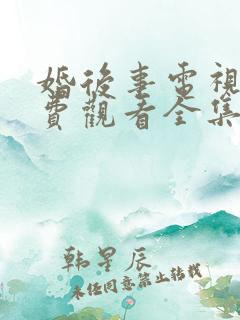 婚後事電視
費觀看全集
韩星辰
未经同意禁止转载